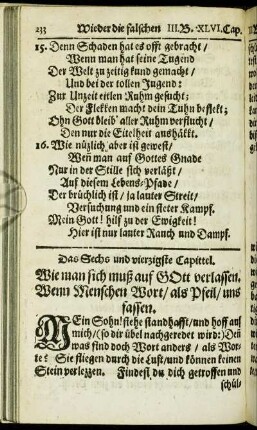 233 Wieder die falschen III.B. XLVI.Cap.
15. Denn Schaden hat es offt gebracht /
Wenn man hat seine Tugend
Der Welt zu zeitig kund gemacht /
Und bei der tollen Jugend:
Zur Unzeit eitlen Ruhm gesucht;
Der Flekken macht dein Tuhn beflekt;
Ohn Gott bleib' aller Ruhm verflucht /
Den nur die Eitelheit aushäkt.
16. Wie nüzlich aber ist gewest /
Weñ man auf Gottes Gnade
Nur in der Stille sich verläßt /
Auf diesem Lebens-Pfade /
Der brüchlich ist / ja lauter Streit /
Versuchung und ein steter Kampf.
Mein Gott! hilf zu der Ewigkeit!
Hier ist nur lauter Rauch und Dampf.
Das Sechs und vierzigste Capittel.
Wie man sich muß auf GOtt verlassen.
Wenn Menschen Wort / als Pfeil / uns
fassen.
MEin Sohn! stehe standhafft / und hoff auf
mich / (so dir übel nachgeredet wird:) Deñ
was sind doch Wort anders / als Wor-
te? Sie fliegen durch die Luft / und können keinen
Stein verlezzen. Findest du dich getroffen und
schül-